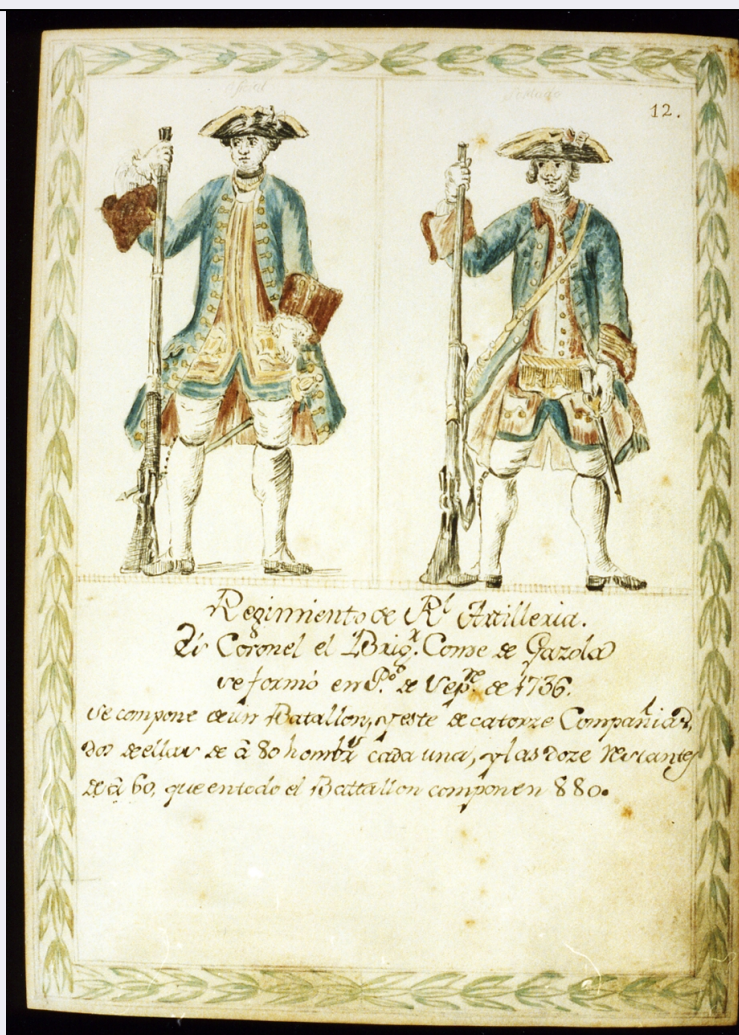 12.
Regimiento de Rl Artilleria.
Es Coronel el Brigr. Come de Gazola
se formò en Po. de Sepre. de 1736.
se compone de un Batallon, y este de catorze Compañias,
dos de ellas de â 80 hombrs cada una, y las doze restantes
de â 60, que en todo el Battallon componen 880.